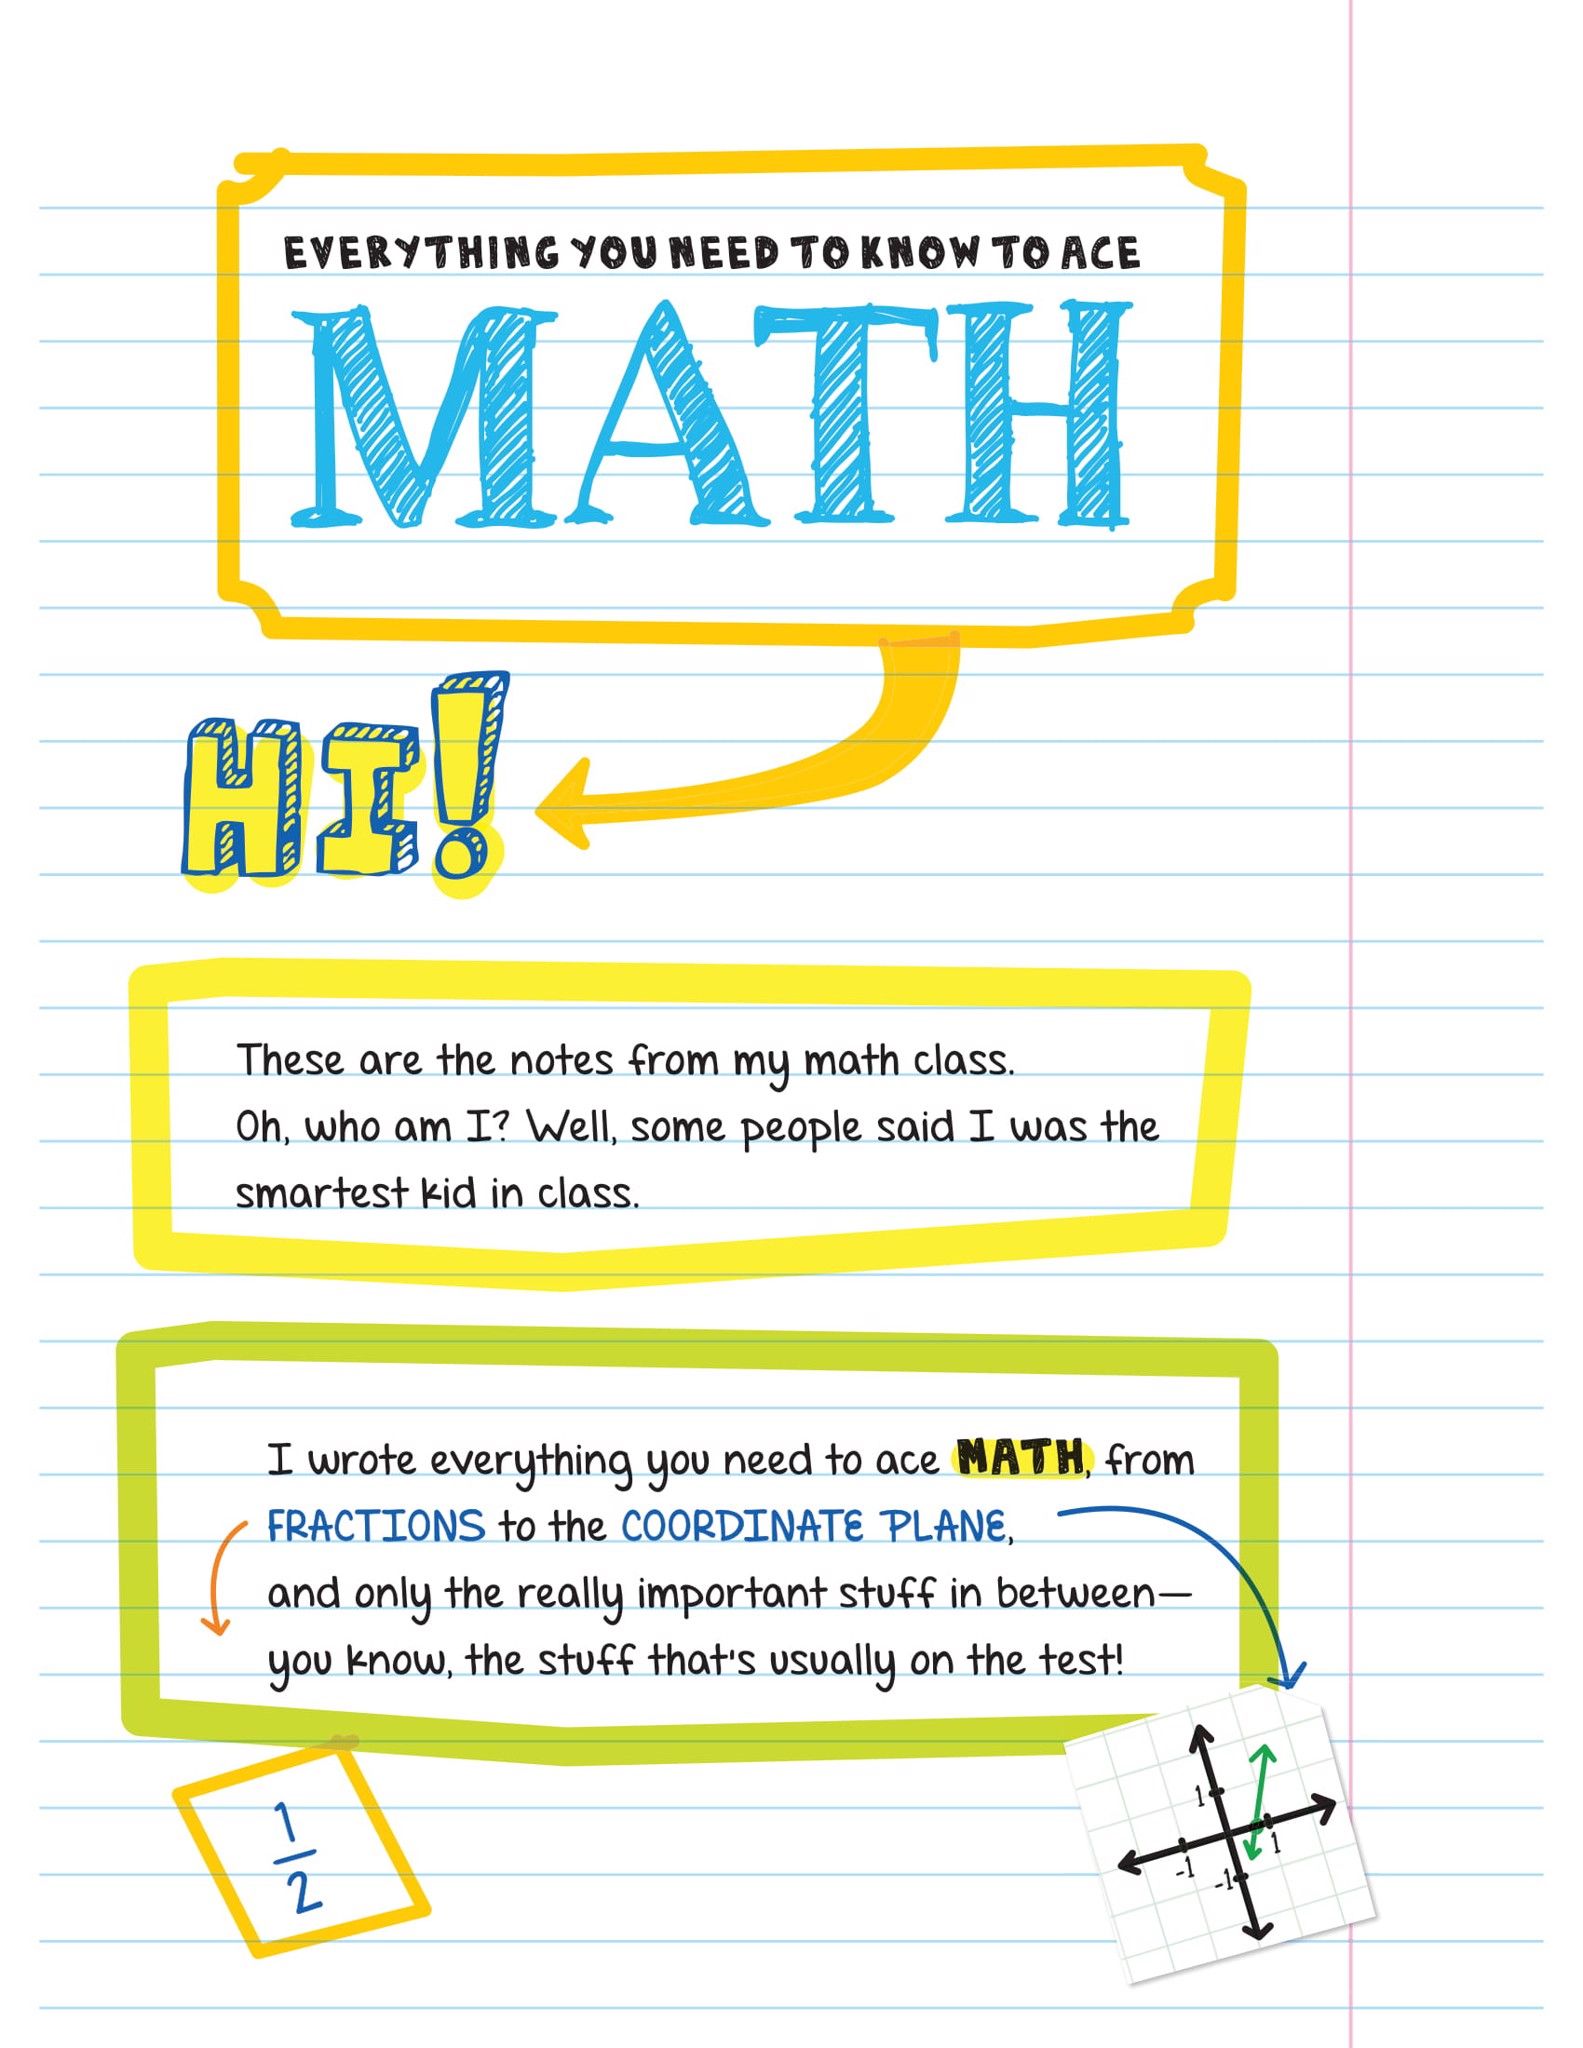 EVERYTHING YOU NEED TO KNOW TO ACE
MATH
HI!
These are the notes from my math class.
Oh, who am I? Well, some people said I was the
smartest kid in class.
I wrote everything you need to ace MATH, from
FRACTIONS to the COORDINATE PLANE,
and only the really important stuff in between—
you know, the stuff that's usually on the test!
1
2
1
1
-1
-1